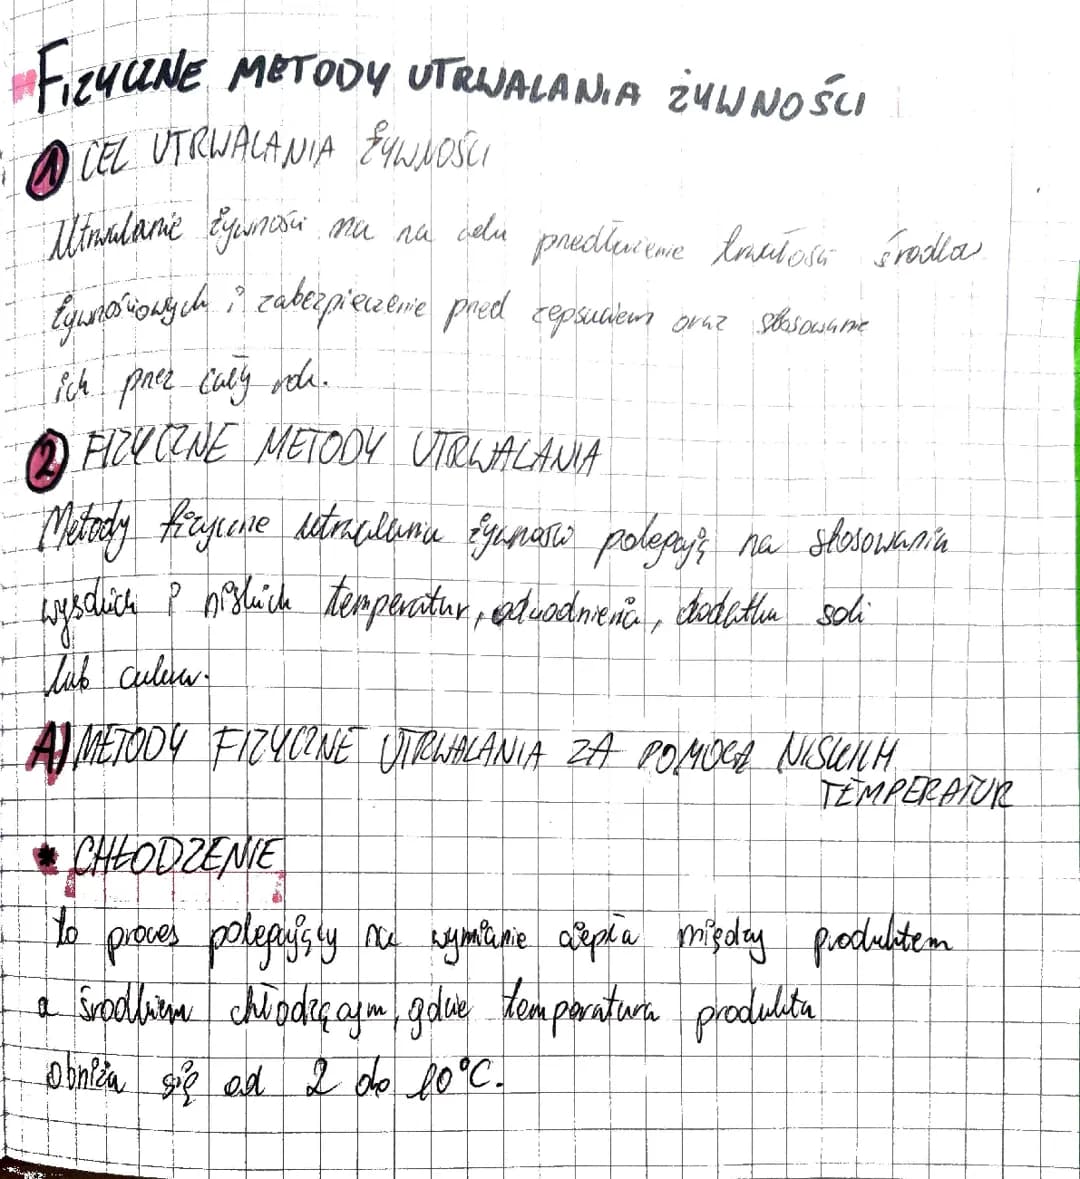 FIZYCZNE METODY UTRWALANIA ŻYWNOŚCI
1 CEL UTRWALANIA ŻYWNOŚCI
Utrwalanie żywności ma na celu przedłużenie trwałości środków
żywnościowych i zabezpieczenie przed zepsuciem oraz stosowanie
ich przez cały rok.
2 FIZYCZNE METODY UTRWALANIA
Metody fizyczne utrwalania żywności polegają na stosowania
wysokich i niskich temperatur, odwodnienia, dodatku soli
lub cukru.
A) METODY FIZYCZNE UTRWALANIA ZA POMOCĄ NISKICH
TEMPERATUR
* CHŁODZENIE
to proces polegający na wymianie ciepła między produktem
a środkiem chłodzącym, gdzie temperatura produktu
obniża się od 2 do 10°C.